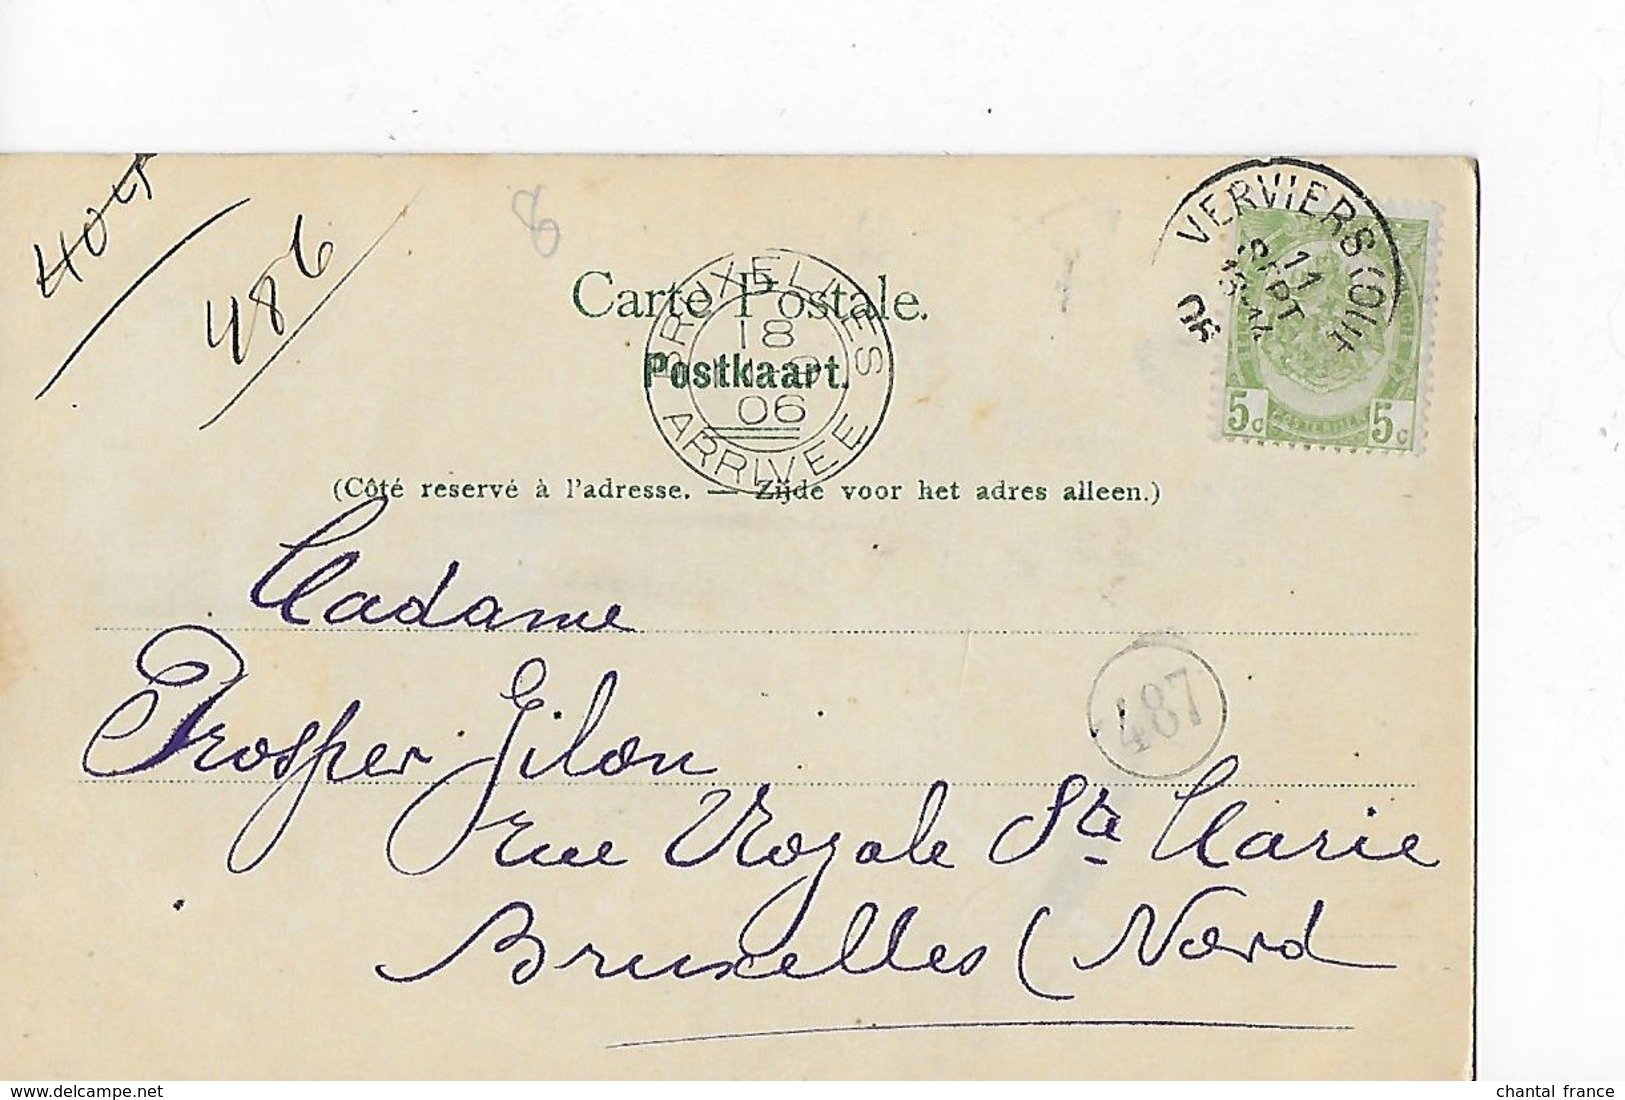 405
486
8
Carte Postale.
Postkaart.
BRUXELLES
18
06
ARRIVEE
VERVIERS
11
SEPT
06
5c 5c
(Côté reservé à l'adresse. — Zijde voor het adres alleen.)
Madame
Prosper Gilon
487
rue Royale Ste Marie
Bruxelles (Nord
chantal france